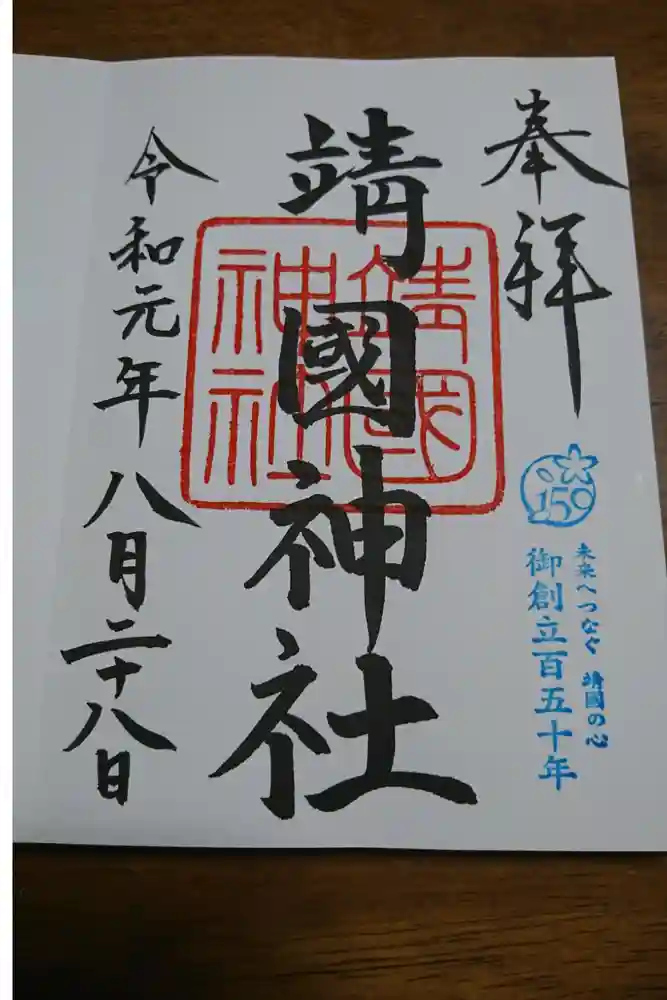 奉拝
150
未来へつなぐ 靖國の心
御創立百五十年
靖國神社
靖國神社
令和元年八月二十八日